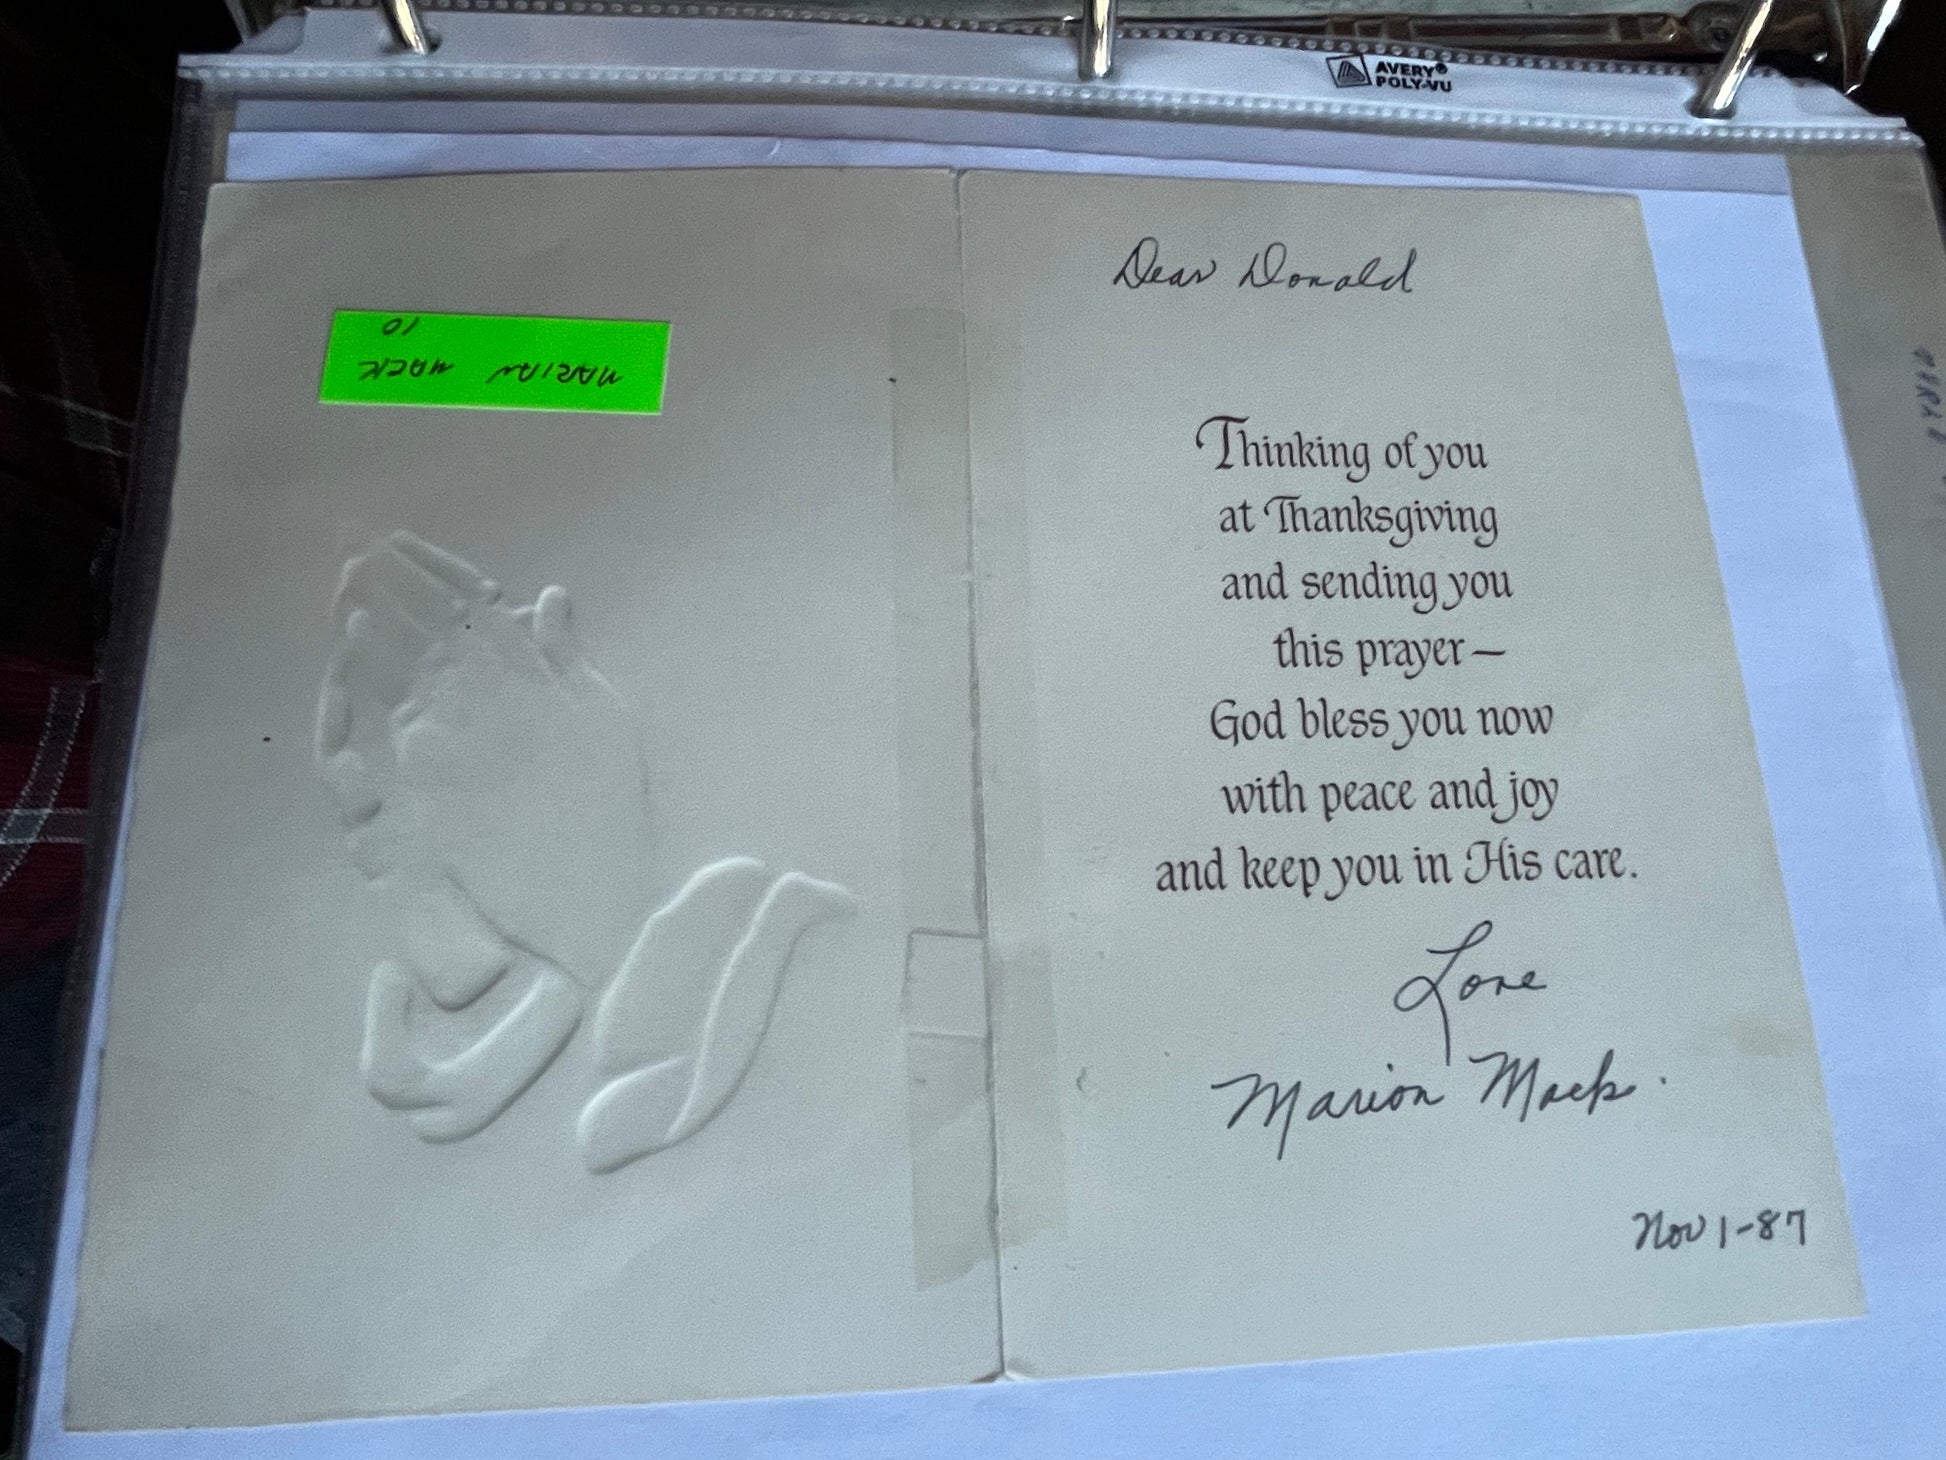 AVERY®
POLY-VU
MARIAN MACK
10
Dear Donald
Thinking of you
at Thanksgiving
and sending you
this prayer—
God bless you now
with peace and joy
and keep you in His care.
Love
Marion Mack.
Nov 1-87